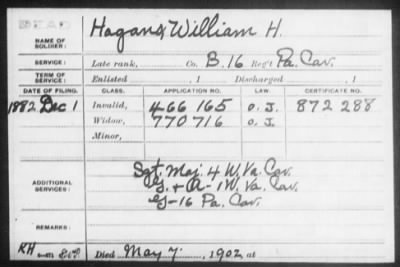 DEAD
NAME OF SOLDIER: Hagans, William H.
SERVICE: Late rank, Co. B. 16 Reg't Pa. Cav.
TERM OF SERVICE: Enlisted , 1 Discharged , 1
DATE OF FILING. CLASS. APPLICATION NO. LAW. CERTIFICATE NO.
1882 Dec 1 Invalid, 466 165 O. J. 872 288
Widow, 770 716 O. J.
Minor,
ADDITIONAL SERVICES: Sgt. Maj. 4 W. Va. Cav.
G. + A - 1 W. Va. Cav.
G - 16 Pa. Cav.
REMARKS:
KH Died May 7, 1902, at